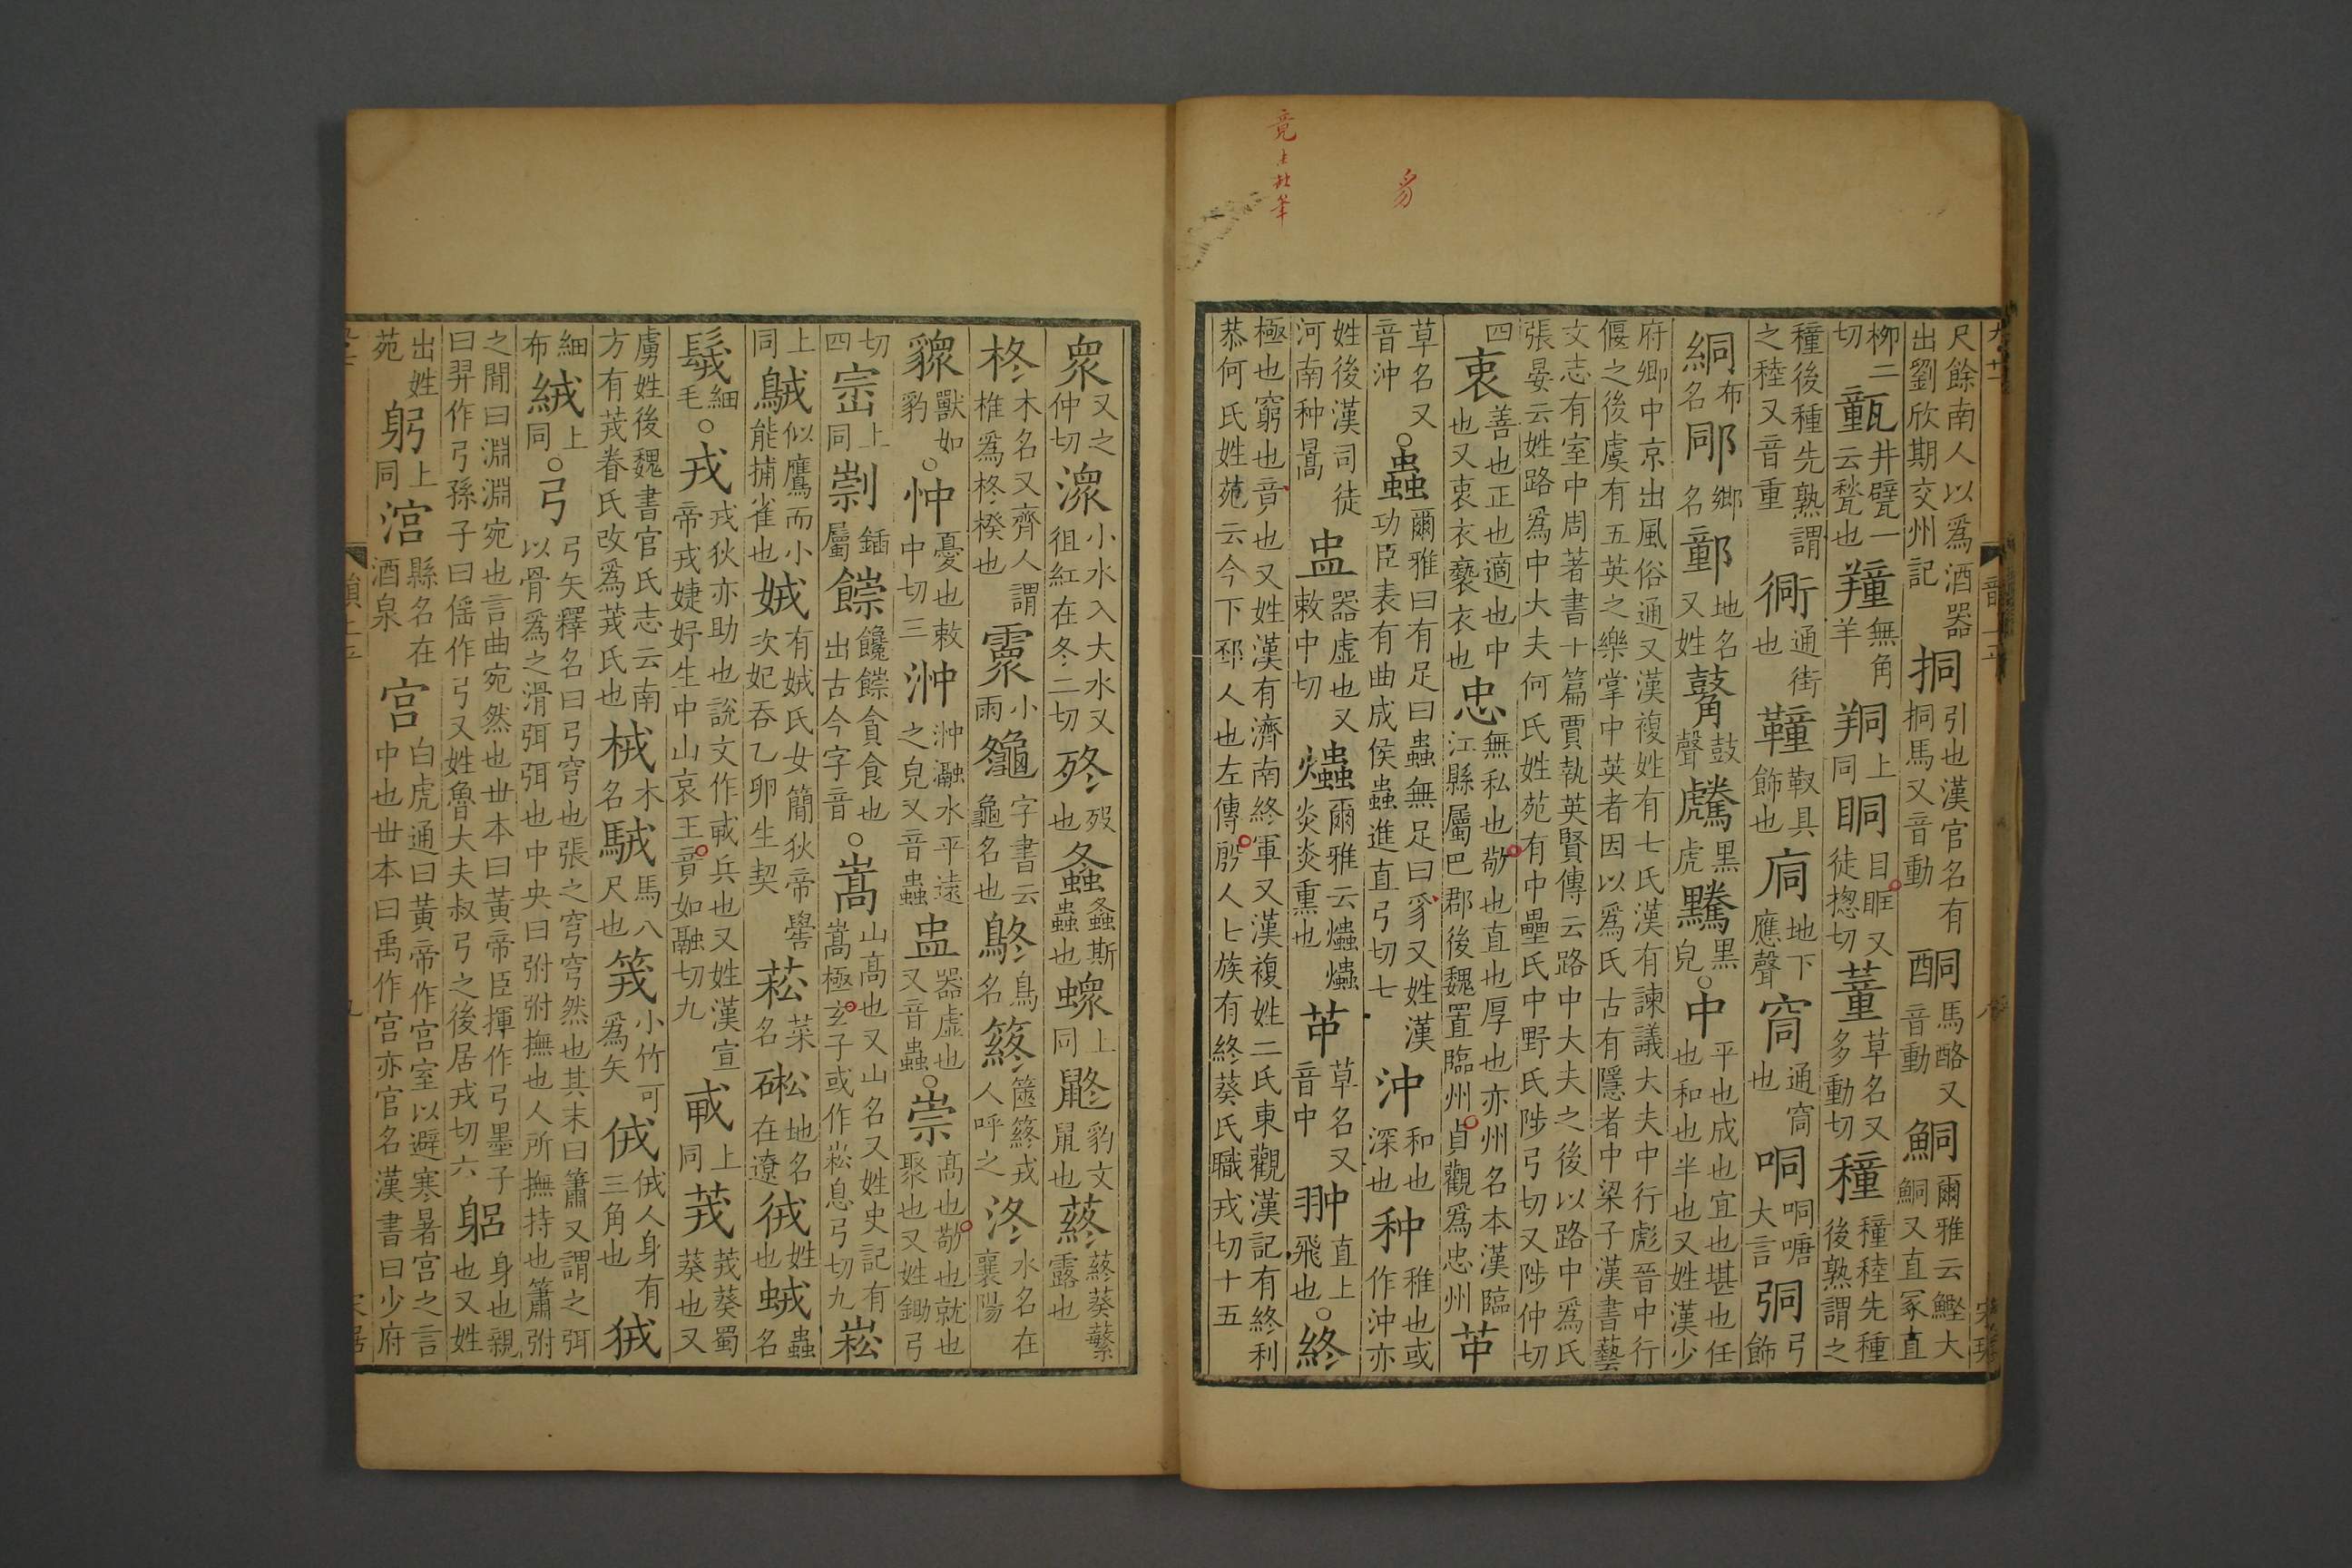 尺餘南人以爲酒器出劉欣期交州記挏引也漢官名有挏馬又音動酮馬酪又音動鮦爾雅云鰹大鮦又直冢直
柳二切㼿井甓一云甃也無角羊上同眮目眶又徒揔切董草名又多動切穜穜稑先種後熟謂之
種後種先熟謂之稑又音重衕通街也鞁具飾也地下應聲通也哃哃嘡大言弓飾
絧布名鄉名地名又姓鼓聲黑虎黑皃○中平也成也宜也堪也任也和也半也又姓漢少
府卿中京出風俗通又漢複姓有七氏漢有諫議大夫中行彪晉中行偃之後虞有五英之樂掌中英者因以爲氏古有隱者中梁子漢書藝
文志有室中周著書十篇賈執英賢傳云路中大夫之後以路中爲氏張晏云姓路爲中大夫何氏姓苑有中壘氏中野氏陟弓切又陟仲切
四衷善也正也適也中也又衷衣褻衣也忠無私也敬也直也厚也亦州名本漢臨江縣屬巴郡後魏置臨州貞觀爲忠州
草名又音沖○蟲爾雅曰有足曰蟲無足曰豸又姓漢功臣表有曲成侯蟲進直弓切七沖和也深也种稚也或作沖亦
姓後漢司徒河南种暠盅器虛也又敕中切爞爾雅云爞爞炎炎熏也草名又音中翀直上飛也○終
極也窮也竟也又姓漢有濟南終軍又漢複姓二氏東觀漢記有終利恭何氏姓苑云今下邳人也左傳殷人七族有終葵氏職戎切十五
豸
竟
眾又之仲切潨小水入大水又徂紅在冬二切歿也螽螽斯蟲也上同豹文鼠也蔠蔠葵蘩露也
柊木名又齊人謂椎爲柊楑也霥小雨字書云龜名也鳥名人呼之水名在襄陽
獸如豹○忡憂也敕中切三浺浺瀜水平遠之皃又音蟲盅器虛也又音蟲○崇高也敬也就也聚也又姓鋤弓
切四上同鍤屬饞貪食也出古今字音○嵩山高也又山名又姓史記有嵩極玄子或作崧息弓切九崧
上同似鷹而小能捕雀也娀有娀氏女簡狄帝嚳次妃吞乙卵生契菘菜名地名在遼姓也蟲名
細毛○戎戎狄亦助也說文作𢦦兵也又姓漢宣帝戎婕妤生中山哀王竟如融切九上同茙茙葵蜀葵也又
虜姓後魏書官氏志云南方有茙眷氏改爲茙氏也木名馬八尺也小竹可爲矢人身有三角也
細布絨上同○弓弓矢釋名曰弓穹也張之穹穹然也其末曰簫又謂之弭以骨爲之滑弭弭也中央曰弣弣撫也人所撫持也簫弣
之閒曰淵淵宛也言曲宛然也世本曰黃帝臣揮作弓墨子曰羿作弓孫子曰傜作弓又姓魯大夫叔弓之後居戎切六躳身也親也又姓
出姓苑躬上同涫縣名在酒泉宮白虎通曰黃帝作宮室以避寒暑宮之言中也世本曰禹作宮亦官名漢書曰少府